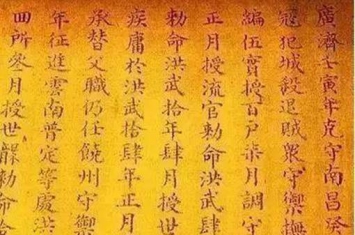 廣濟壬寅年克守南昌癸
冦犯城殺退賊衆守禦撫
編伍實授百戶柒月調守
正月授流官勅命洪武肆
勅命洪武拾年肆月授世
疾庸於洪武拾肆年正月
承替父職仍任饒州守禦
年征進雲南普定等處洪
回所叁月授世襲勅命